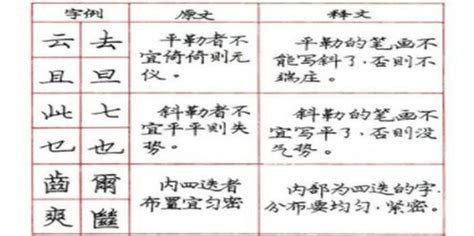 字例 原文 释文
云 去 平勒者不 平勒的笔画不
宜倚倚则无 能写斜了,否则不
且 旦 仪。 端庄。
此 七 斜勒者不 斜勒的笔画不
宜平平则失 宜写平了,否则没
乜 也 势。 气势。
齒 爾 内四迭者 内部为四迭的字,
爽 布置宜匀密 分布要均匀、紧密。